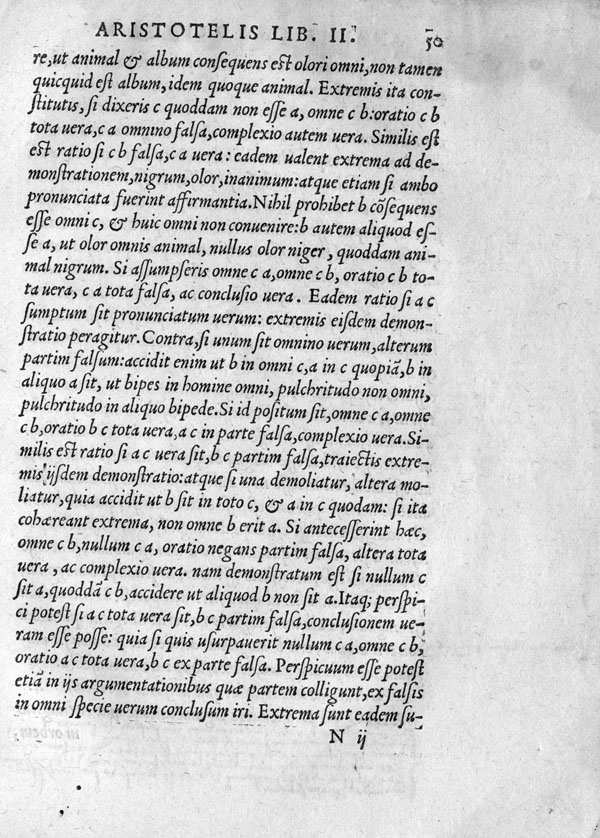 ARISTOTELIS LIB. II. 50
re, ut animal & album consequens est olori omni, non tamen
quicquid est album, idem quoque animal. Extremis ita con-
stitutis, si dixeris c quoddam non esse a, omne c b: oratio c b
tota uera, c a omnino falsa, complexio autem uera. Similis est
est ratio si c b falsa, c a uera: eadem ualent extrema ad de-
monstrationem, nigrum, olor, inanimum: atque etiam si ambo
pronunciata fuerint affirmantia. Nihil prohibet b cōsequens
esse omni c, & huic omni non conuenire: b autem aliquod es-
se a, ut olor omnis animal, nullus olor niger, quoddam ani-
mal nigrum. Si assumpseris omne c a, omne c b, oratio c b to-
ta uera, c a tota falsa, ac conclusio uera. Eadem ratio si a c
sumptum sit pronunciatum uerum: extremis eisdem demon-
stratio peragitur. Contra, si unum sit omnino uerum, alterum
partim falsum: accidit enim ut b in omni c, a in c quopiā, b in
aliquo a sit, ut bipes in homine omni, pulchritudo non omni,
pulchritudo in aliquo bipede. Si id positum sit, omne c a, omne
c b, oratio b c tota uera, a c in parte falsa, complexio uera. Si-
milis est ratio si a c uera sit, b c partim falsa, traiectis extre-
mis ijsdem demonstratio: atque si una demoliatur, altera mo-
liatur, quia accidit ut b sit in toto c, & a in c quodam: si ita
cohæreant extrema, non omne b erit a. Si antecesserint hæc,
omne c b, nullum c a, oratio negans partim falsa, altera tota
uera, ac complexio uera. nam demonstratum est si nullum c
sit a, quoddā c b, accidere ut aliquod b non sit a. Itaq; perspi-
ci potest si a c tota uera sit, b c partim falsa, conclusionem ue-
ram esse posse: quia si quis usurpauerit nullum c a, omne c b,
oratio a c tota uera, b c ex parte falsa. Perspicuum esse potest
etiā in ijs argumentationibus quæ partem colligunt, ex falsis
in omni specie uerum conclusum iri. Extrema sunt eadem su-
N ij